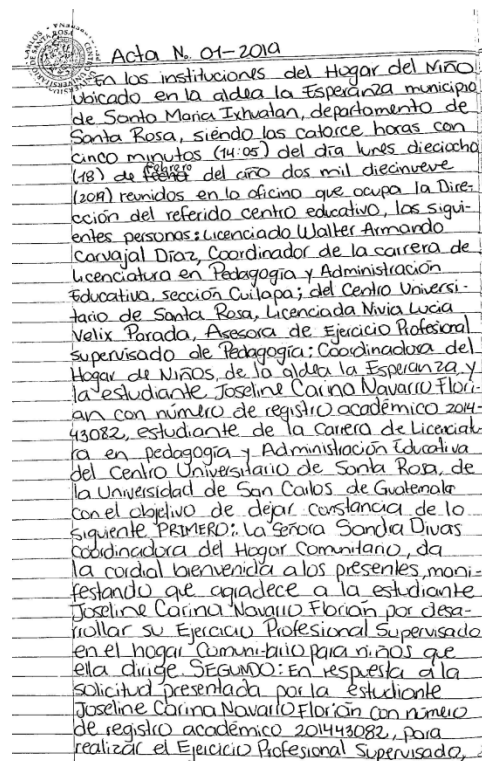 Acta No. 01-2019
En los instituciones del Hogar del Niño
Ubicado en la aldea la Esperanza municipio
de Santa Maria Ixhuatan, departamento de
Santa Rosa, siendo las catorce horas con
cinco minutos (14:05) del día lunes dieciocho
(18) de febrero del año dos mil diecinueve
(2019) reunidos en la oficina que ocupa la Dire-
cción del referido centro educativo, las sigui-
entes personas: Licenciado Walter Armando
Carvajal Díaz, Coordinador de la carrera de
Licenciatura en Pedagogía y Administración
Educativa, sección Cuilapa; del Centro Universi-
tario de Santa Rosa, Licenciada Nivia Lucia
Velix Parada, Asesora de Ejercicio Profesional
Supervisado de Pedagogía: Coordinadora del
Hogar de Niños, de la aldea la Esperanza, y
la estudiante Joseline Carina Navarro Flori-
an con número de registro académico 2014-
43082, estudiante de la Carrera de Licenciatu-
ra en pedagogía y Administración Educativa
del Centro Universitario de Santa Rosa, de
la Universidad de San Carlos de Guatemala
con el objetivo de dejar constancia de lo
siguiente PRIMERO: La Señora Sandra Divas
coordinadora del Hogar Comunitario, da
la cordial bienvenida a los presentes, mani-
festando que agradece a la estudiante
Joseline Carina Navarro Florián por desa-
rrollar su Ejercicio Profesional Supervisado
en el hogar Comunitario para niños que
ella dirige. SEGUNDO: En respuesta a la
solicitud presentada por la estudiante
Joseline Carina Navarro Florián con número
de registro académico 201443082, para
realizar el Ejercicio Profesional Supervisado,